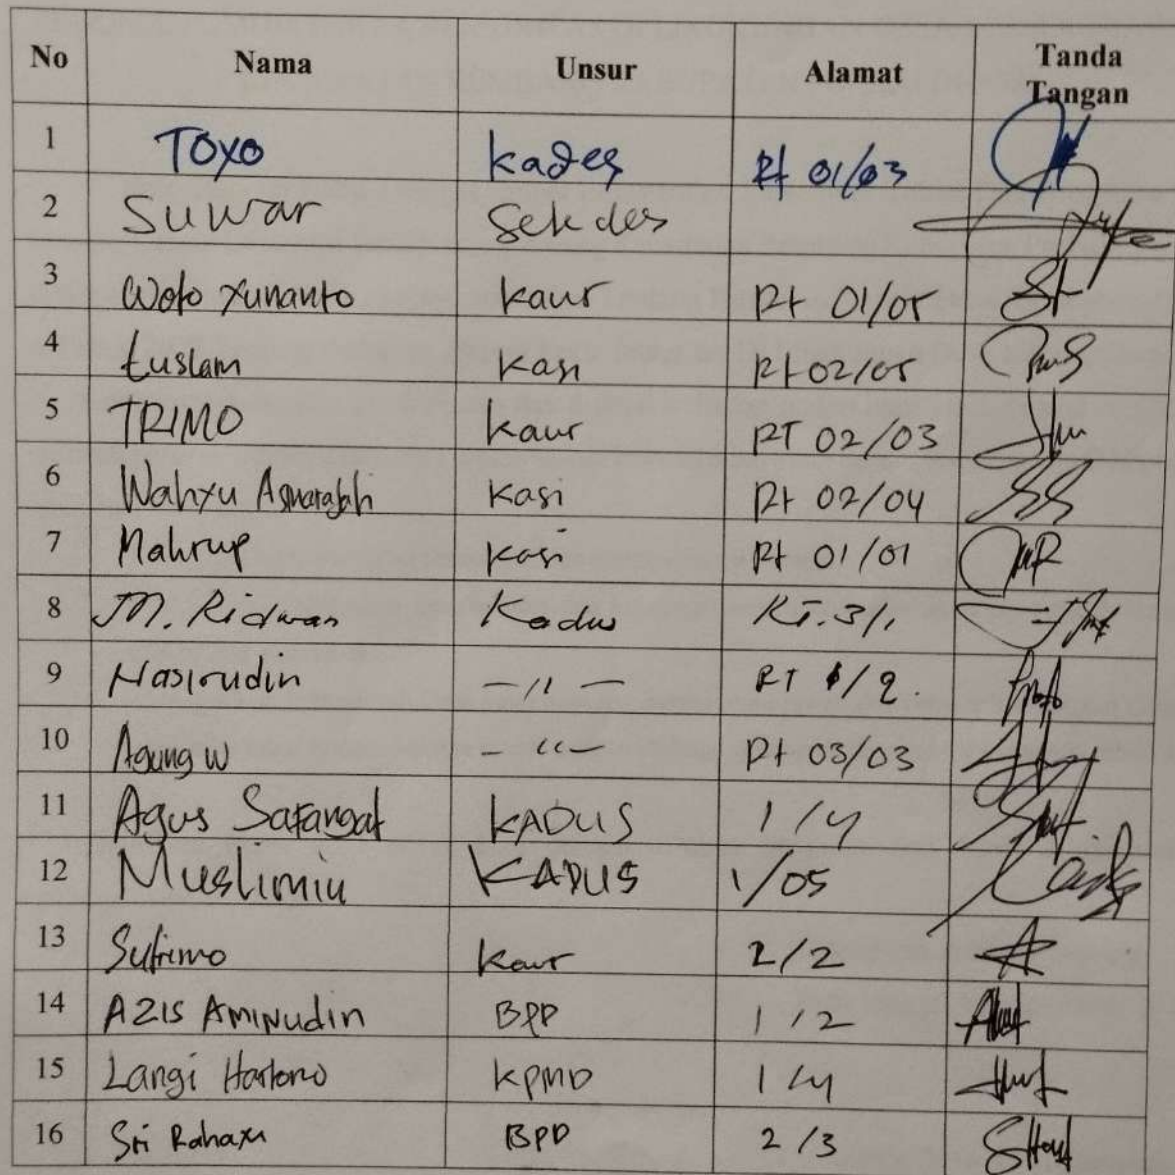 No Nama Unsur Alamat Tanda Tangan
1 TOYO Kades Rt 01/03
2 Suwar Sekdes
3 Woto Yunanto Kaur Rt 01/05
4 Kasi Rt 02/05
5 TRIMO Kaur RT 02/03
6 Wahyu Kasi Rt 02/04
7 Mahrup Kasi Rt 01/01
8 M. Ridwan Kadus RT. 3/1
9 Nasirudin — 11 — RT 1/2.
10 Agung W — " — Rt 03/03
11 Agus Safangat KADUS 1/4
12 Muslimin KADUS 1/05
13 Sutrimo Kaur 2/2
14 AZIS AMINUDIN BPD 1/2
15 Langi Hartono KPMD 1/4
16 Sri Rahayu BPD 2/3